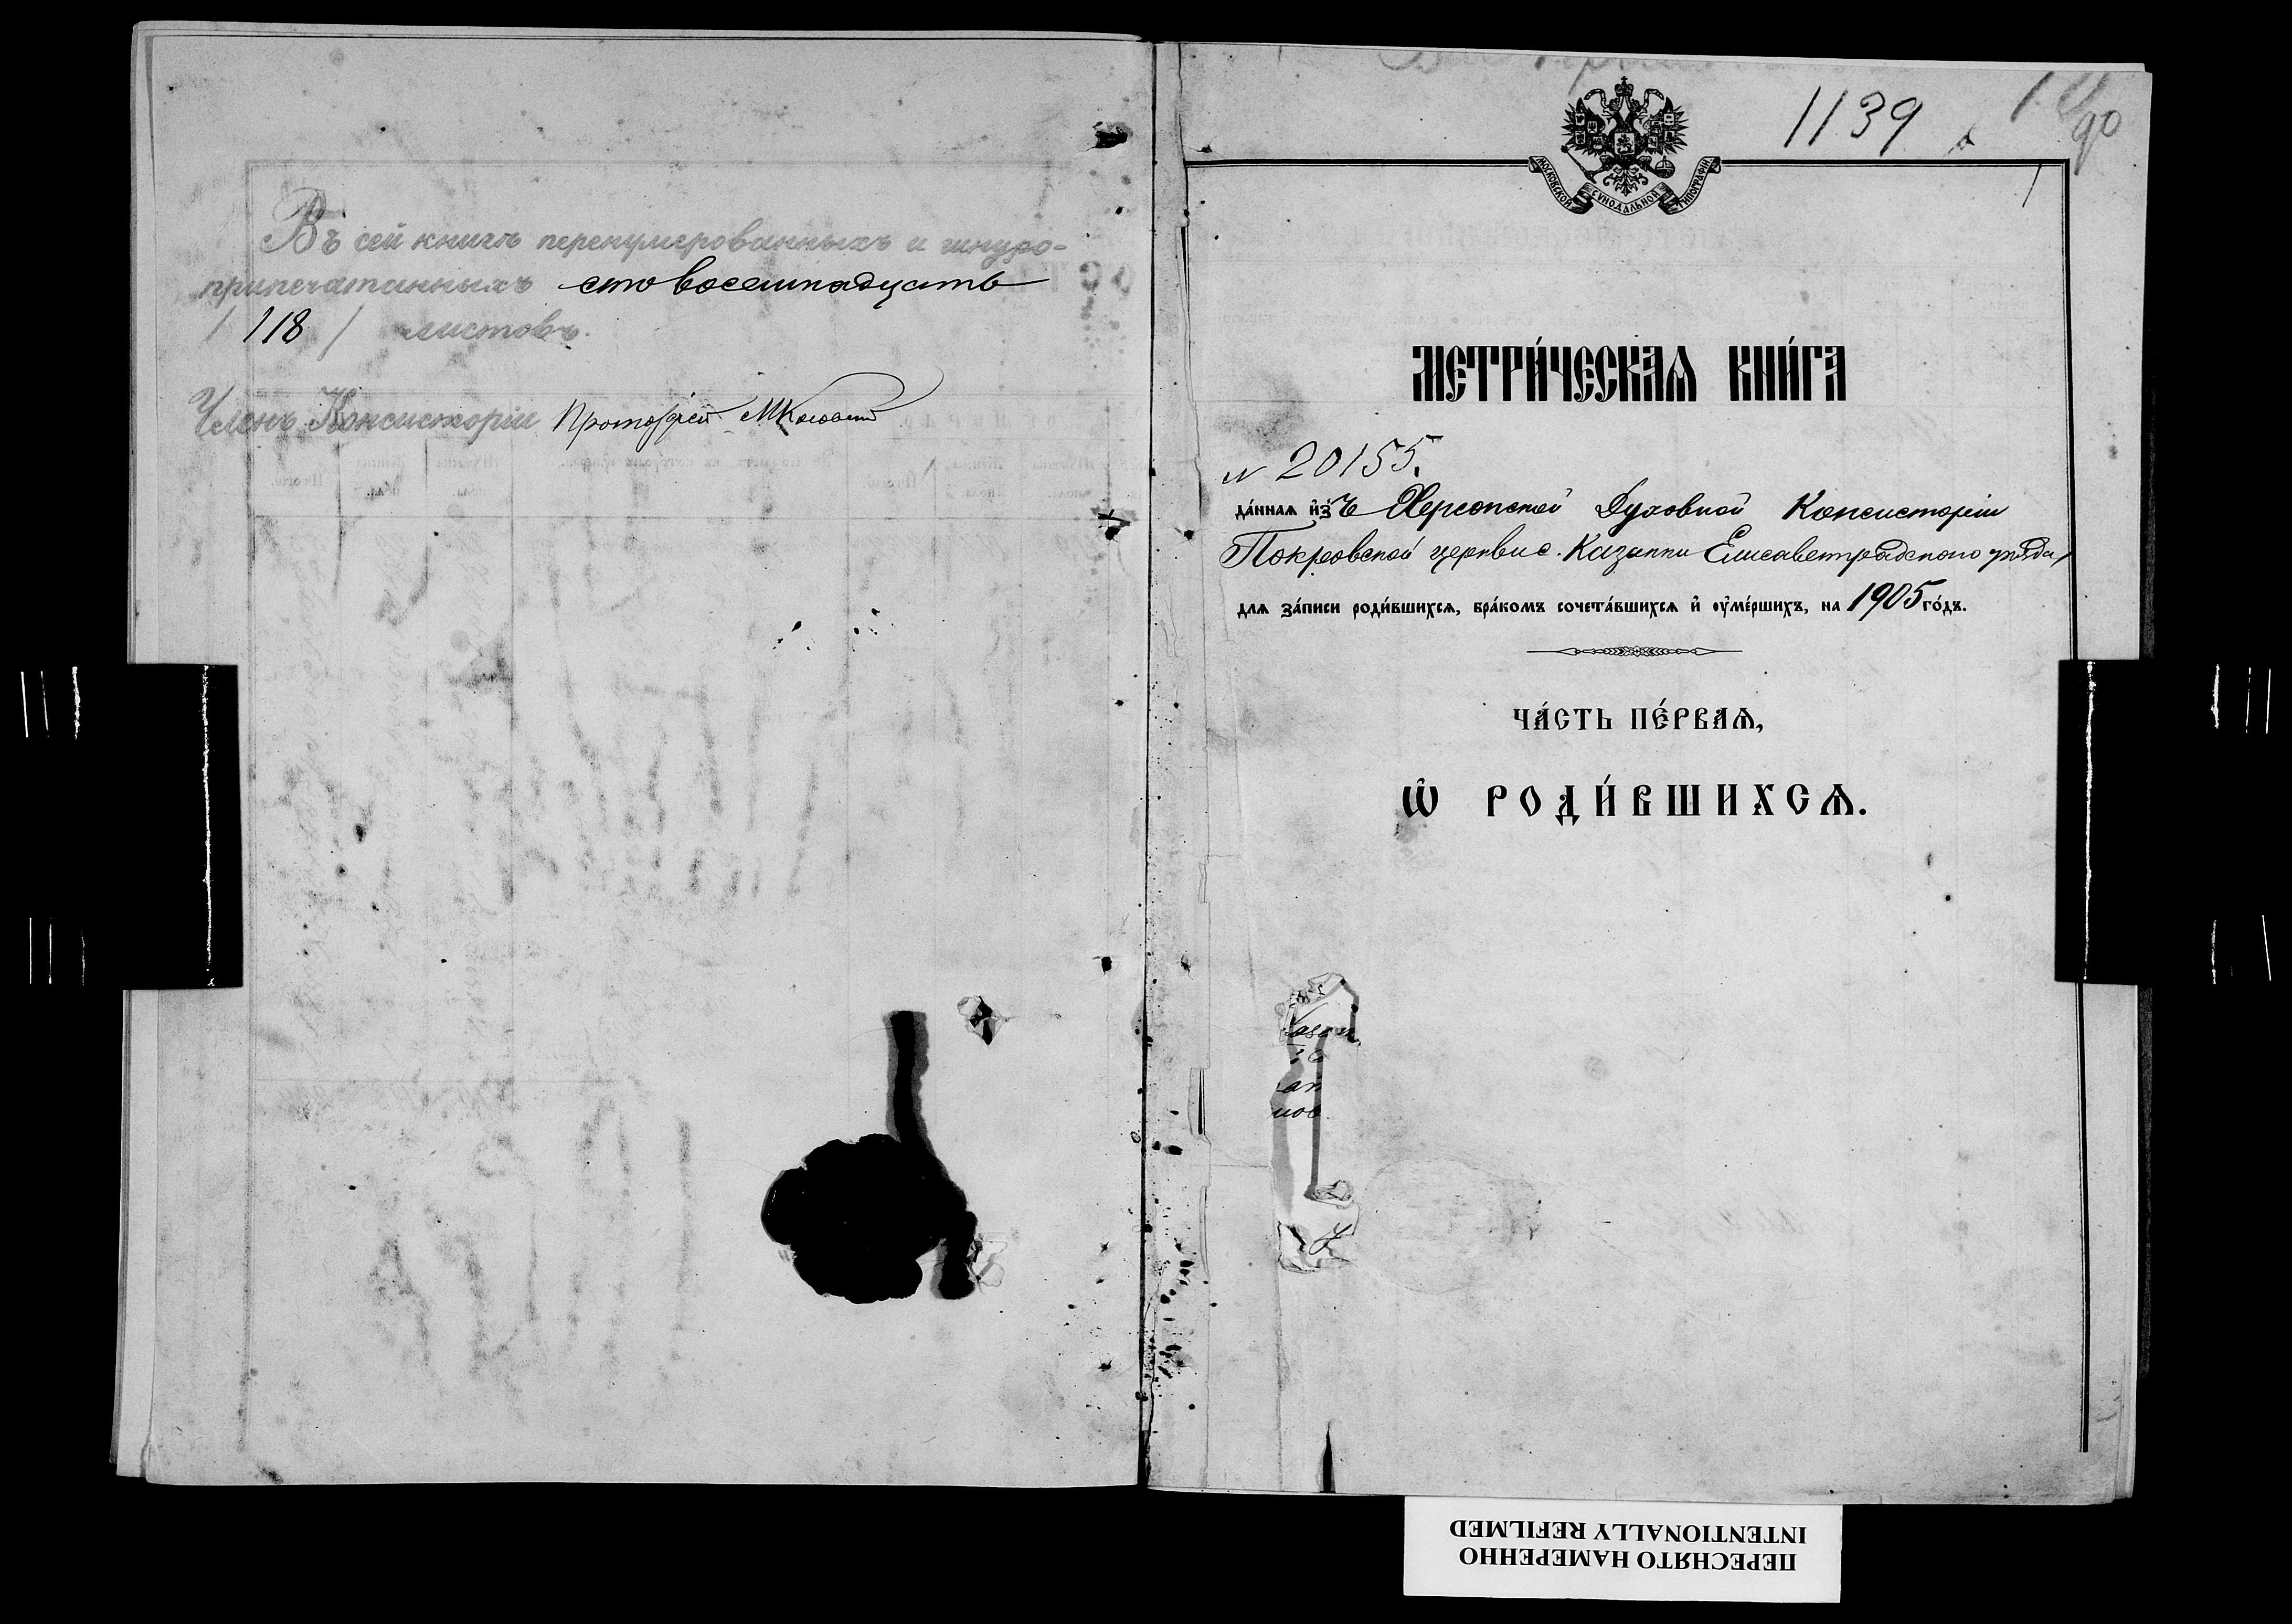 Въ сей книгѣ перенумерованныхъ и шнуро-
припечатанныхъ сто восемнадцать
/ 118 / листовъ.
Членъ Консисторіи Протоіерей
1139
90
1
МОСКОВСКОЙ СѴНОДАЛЬНОЙ ТИПОГРАФІИ
МЕТРИ́ЧЕСКАѦ КНИ́ГА
N 20155.
да́ннаѧ и҆зъ Херсонской Духовной Консисторіи
Покровской церкви с. Казанки Елисаветградского уѣзда,
для за́писи роди́вшихсѧ, бра́комъ сочета́вшихсѧ и҆ ᲂу҆ме́ршихъ, на 1905 го́дъ.
ЧА́СТЬ ПЕ́РВАѦ,
Ѽ РОДИ́ВШИХСѦ.
ПЕРЕСНЯТО НАМЕРЕННО
INTENTIONALLY REFILMED